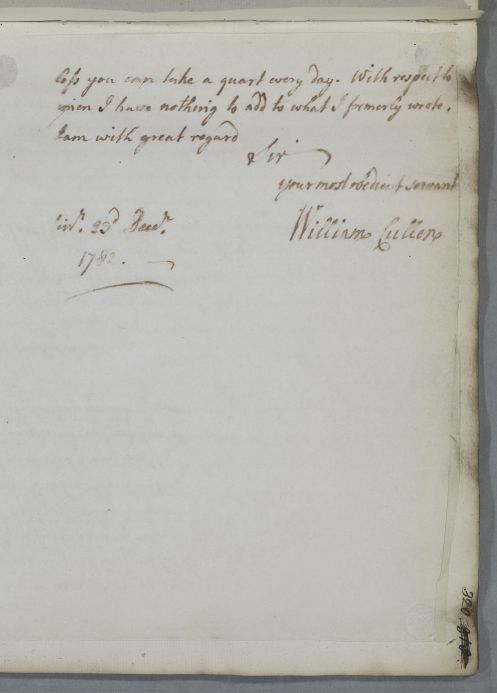 less you can take a quart every day. With respect to
I have nothing to add to what I formerly wrote.
I am with great regard
Sir
your most obedient servant
23d Decr.
William Cullen
1782.
320